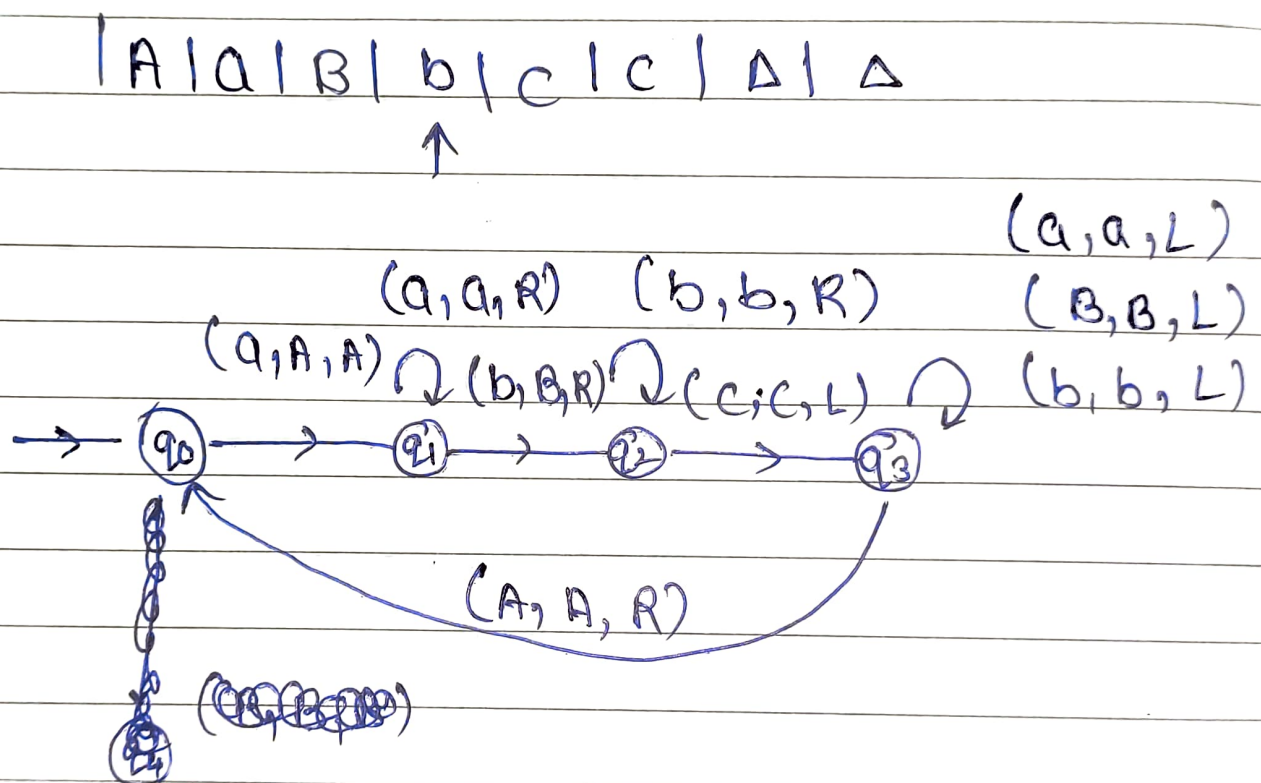 |A|a|B|b|C|C|Δ|Δ
↑
(a,a,L)
(a,a,R) (b,b,R) (B,B,L)
(a,A,A) (b,B,R) (C,C,L) (b,b,L)
q0 q1 q2 q3
(A,A,R)
q4